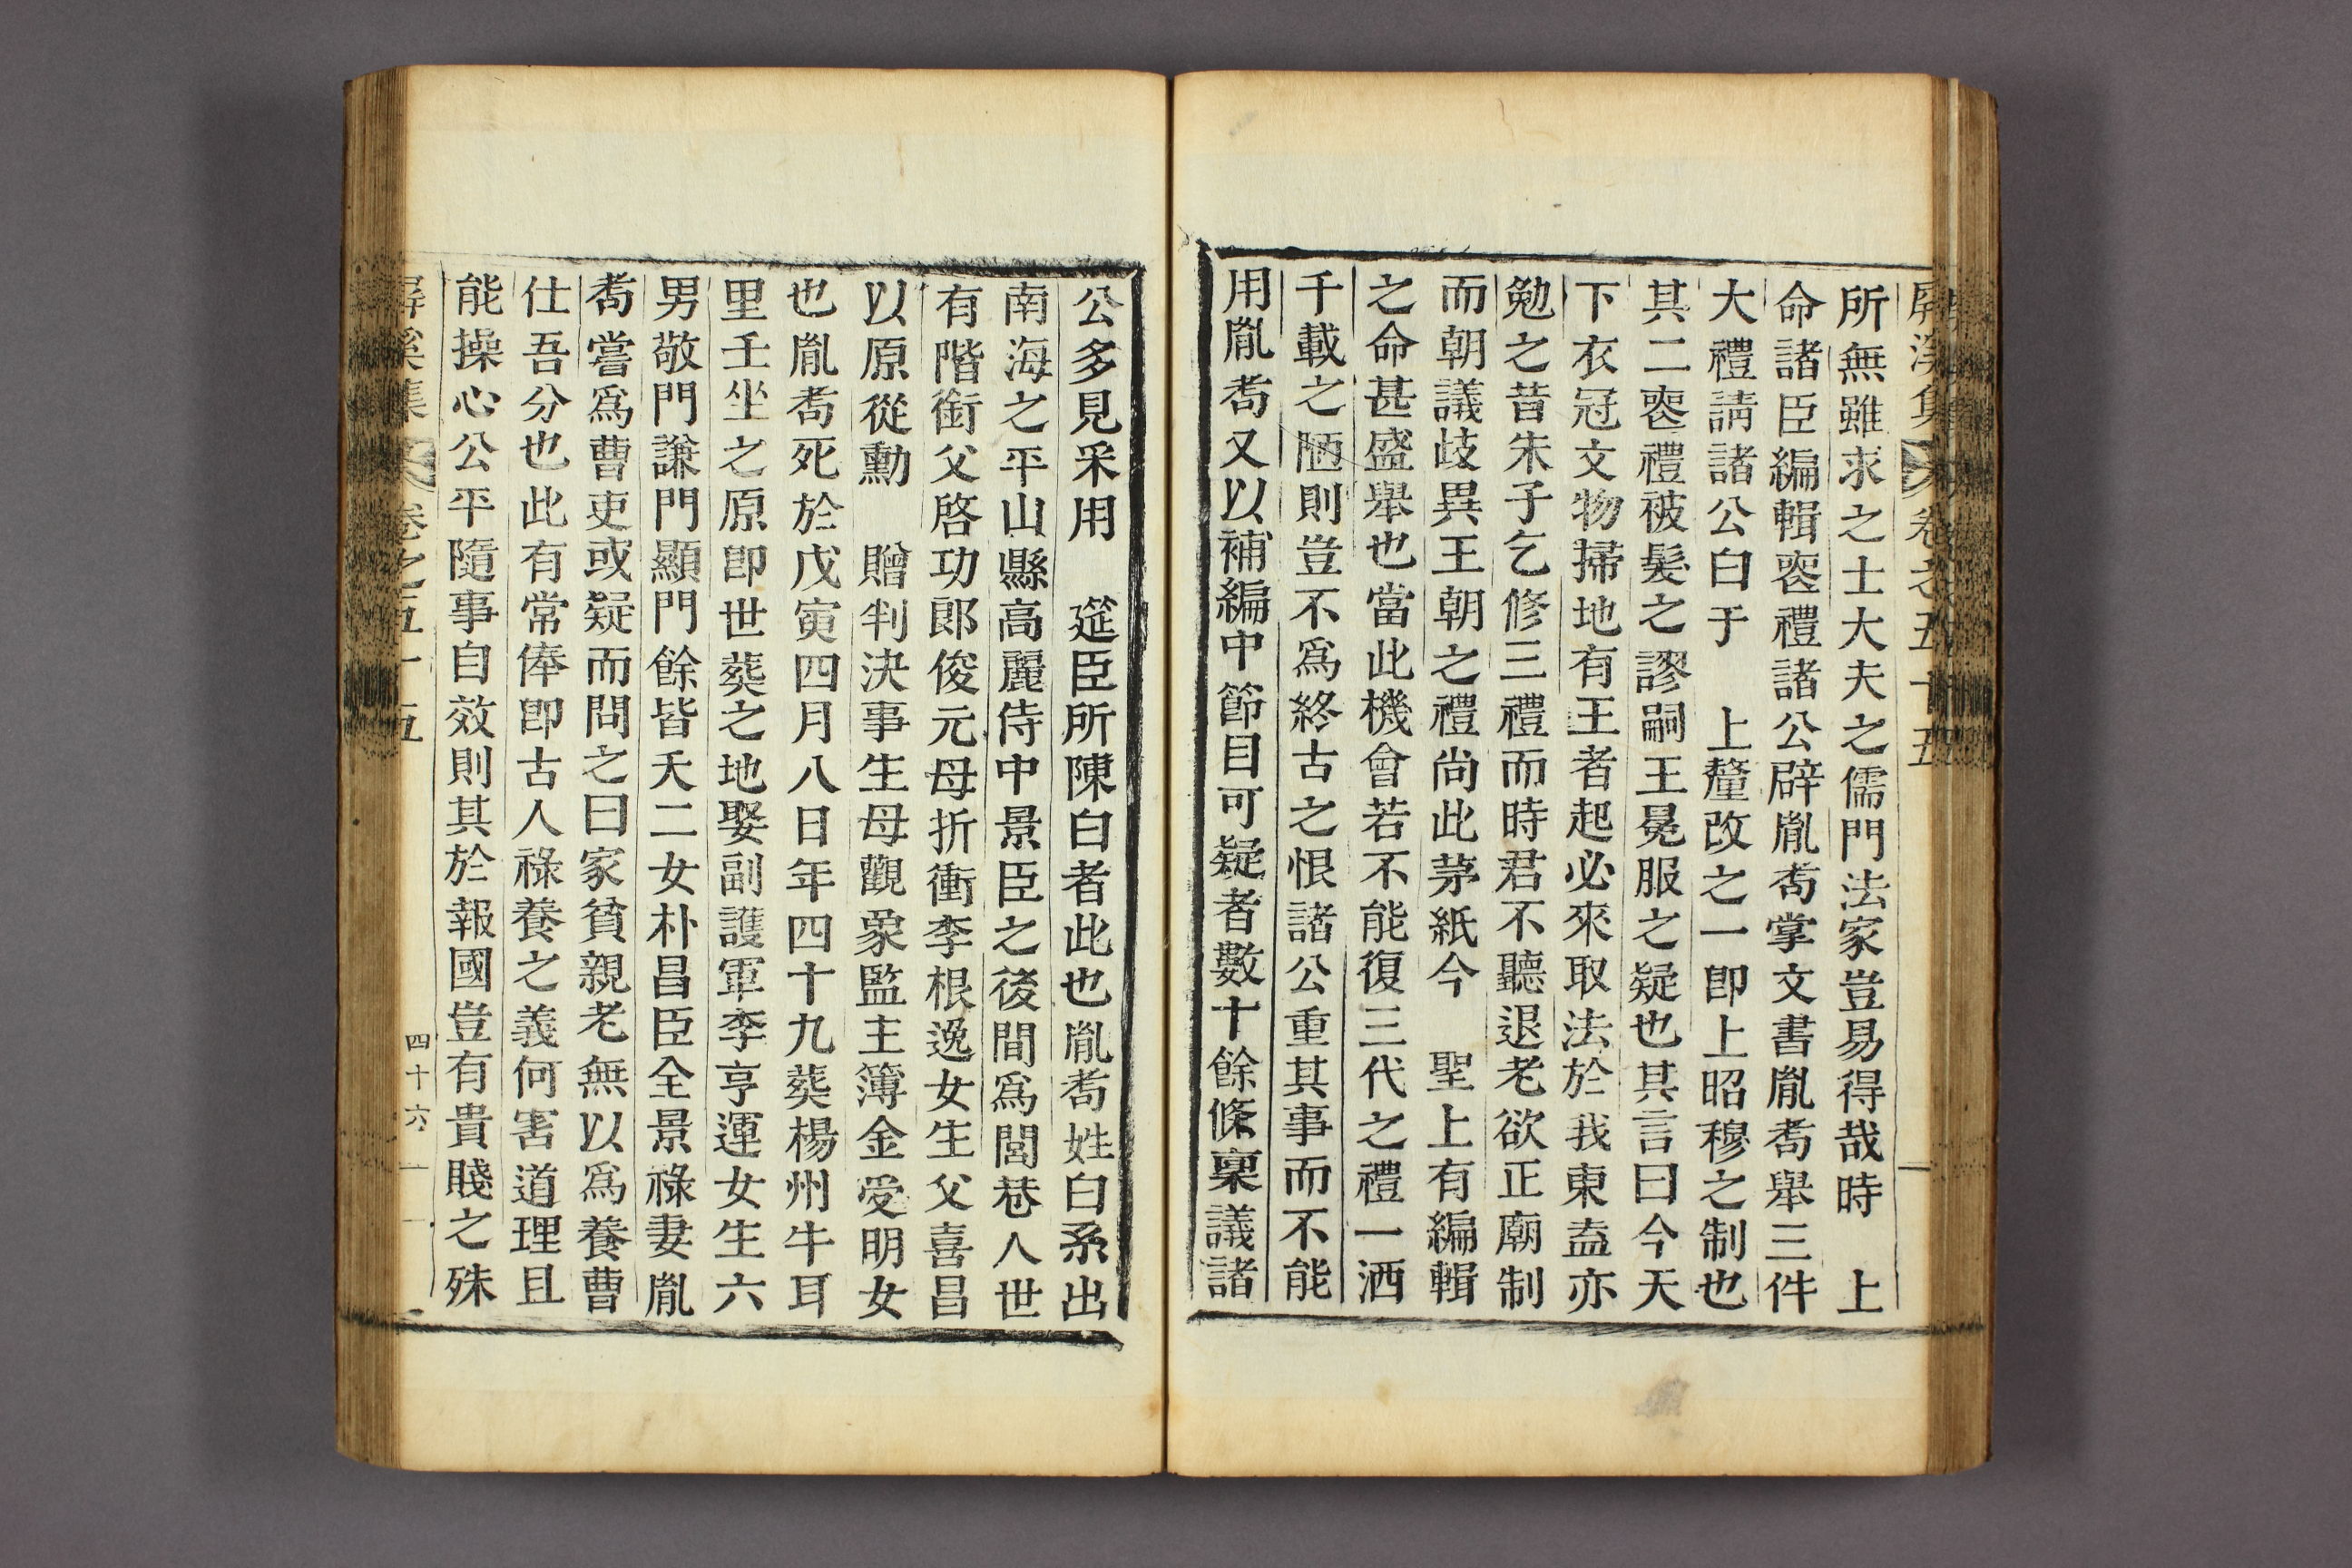 屛溪集 卷之五十五
所無雖求之士大夫之儒門法家豈易得哉時 上
命諸臣編輯䘮禮諸公辟胤喬掌文書胤喬舉三件
大禮請諸公白于 上釐改之一卽上昭穆之制也
其二䘮禮被髮之謬嗣王冕服之疑也其言曰今天
下衣冠文物掃地有王者起必來取法於我東盍亦
勉之昔朱子乞修三禮而時君不聽退老欲正廟制
而朝議歧異王朝之禮尙此茅紙今 聖上有編輯
之命甚盛舉也當此機會若不能復三代之禮一洒
千載之陋則豈不爲終古之恨諸公重其事而不能
用胤喬又以補編中節目可疑者數十餘條稟議諸
公多見采用 筵臣所陳白者此也胤喬姓白系出
南海之平山縣高麗侍中景臣之後間爲閭巷人世
有階銜父啓功郞俊元母折衝李根逸女生父喜昌
以原從勳 贈判決事生母觀象監主簿金愛明女
也胤喬死於戊寅四月八日年四十九葬楊州牛耳
里壬坐之原卽世葬之地娶副護軍李亨運女生六
男敬門謙門顯門餘皆夭二女朴昌臣全景祿妻胤
喬嘗爲曹吏或疑而問之曰家貧親老無以爲養曹
仕吾分也此有常俸卽古人祿養之義何害道理且
能操心公平隨事自效則其於報國豈有貴賤之殊
屛溪集 卷之五十五 四十六